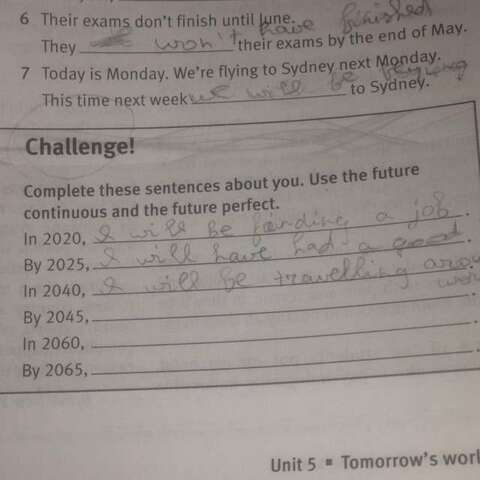 6 Their exams don't finish until June.
They won't have finished their exams by the end of May.
7 Today is Monday. We're flying to Sydney next Monday.
This time next week we will be flying to Sydney.
Challenge!
Complete these sentences about you. Use the future
continuous and the future perfect.
In 2020, I will be finding a job.
By 2025, I will have had a good.
In 2040, I will be travelling arou
wor
By 2045, .
In 2060, .
By 2065, .
Unit 5 ▪ Tomorrow's worl